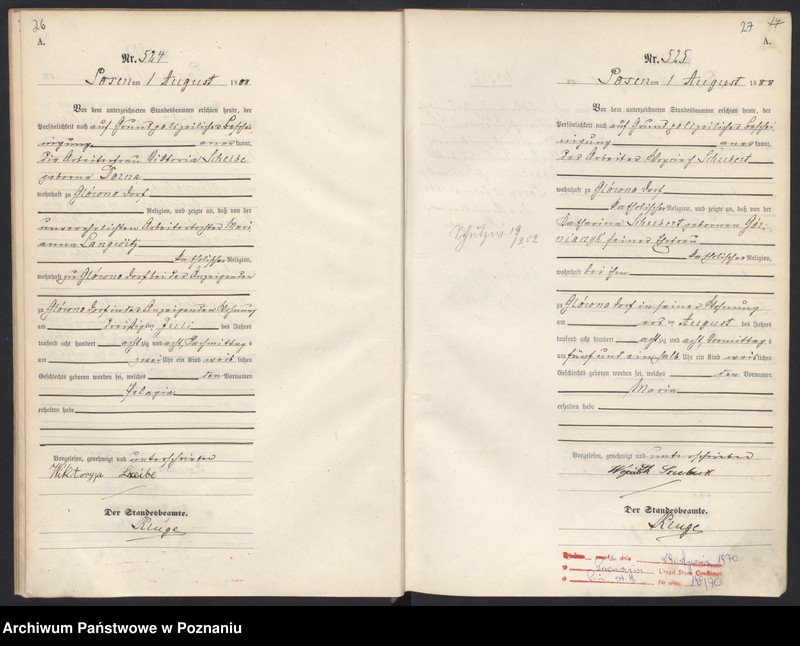 26
A.
Nr. 524
Posen am 1 August 1888
Vor dem unterzeichneten Standesbeamten erschien heute, der
Persönlichkeit nach auf Grund polizeilicher Beschei-
nigung anerkannt,
die Arbeiterfrau Viktoria Scheibe
geborne
wohnhaft zu Glówno Dorf
Religion, und zeigte an, daß von der
unverehelichten Arbeitertochter Mari
anna
katholischer Religion,
wohnhaft zu Glówno Dorf bei der Anzeigenden
zu Glówno Dorf in der Anzeigenden Wohnung
am dreißigsten Juli des Jahres
tausend acht hundert achtzig und acht Nachmittags
um zwei Uhr ein Kind weiblichen
Geschlechts geboren worden sei, welches den Vornamen
Pelagia
erhalten habe
Vorgelesen, genehmigt und unterschrieben
Wiktoryja Szeibe
Der Standesbeamte.
27
A.
Nr. 525
Posen am 1 August 1888
Vor dem unterzeichneten Standesbeamten erschien heute, der
Persönlichkeit nach auf Grund polizeilicher Beschei-
nigung anerkannt,
der Arbeiter Schubert
wohnhaft zu Glówno Dorf
katholischer Religion, und zeigte an, daß von der
Katharina Schubert gebornen
seiner Ehefrau
katholischer Religion,
wohnhaft bei ihm
zu Glówno Dorf in seiner Wohnung
am ersten August des Jahres
tausend acht hundert achtzig und acht Vormittags
um fünf und ein halb Uhr ein Kind weiblichen
Geschlechts geboren worden sei, welches den Vornamen
Maria
erhalten habe
Vorgelesen, genehmigt und unterschrieben
Der Standesbeamte.
dnia 1970
Urząd Stanu Cywilnego
Nr aktu
Archiwum Państwowe w Poznaniu